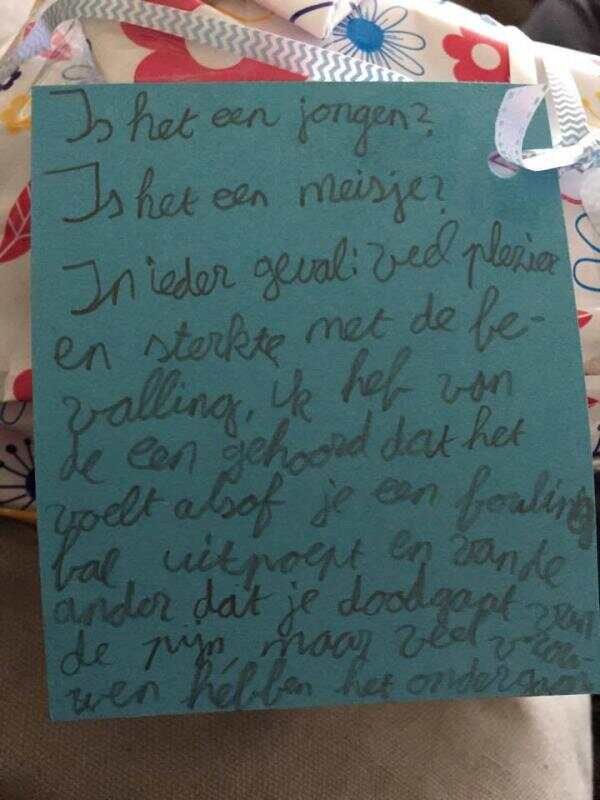 Is het een jongen?
Is het een meisje?
In ieder geval: veel plezier
en sterkte met de be-
valling, ik heb van
de een gehoord dat het
voelt alsof je een bouling
bal uitpoept en van de
ander dat je doodgaat van
de pijn maar veel vrou-
wen hebben het ondergaan